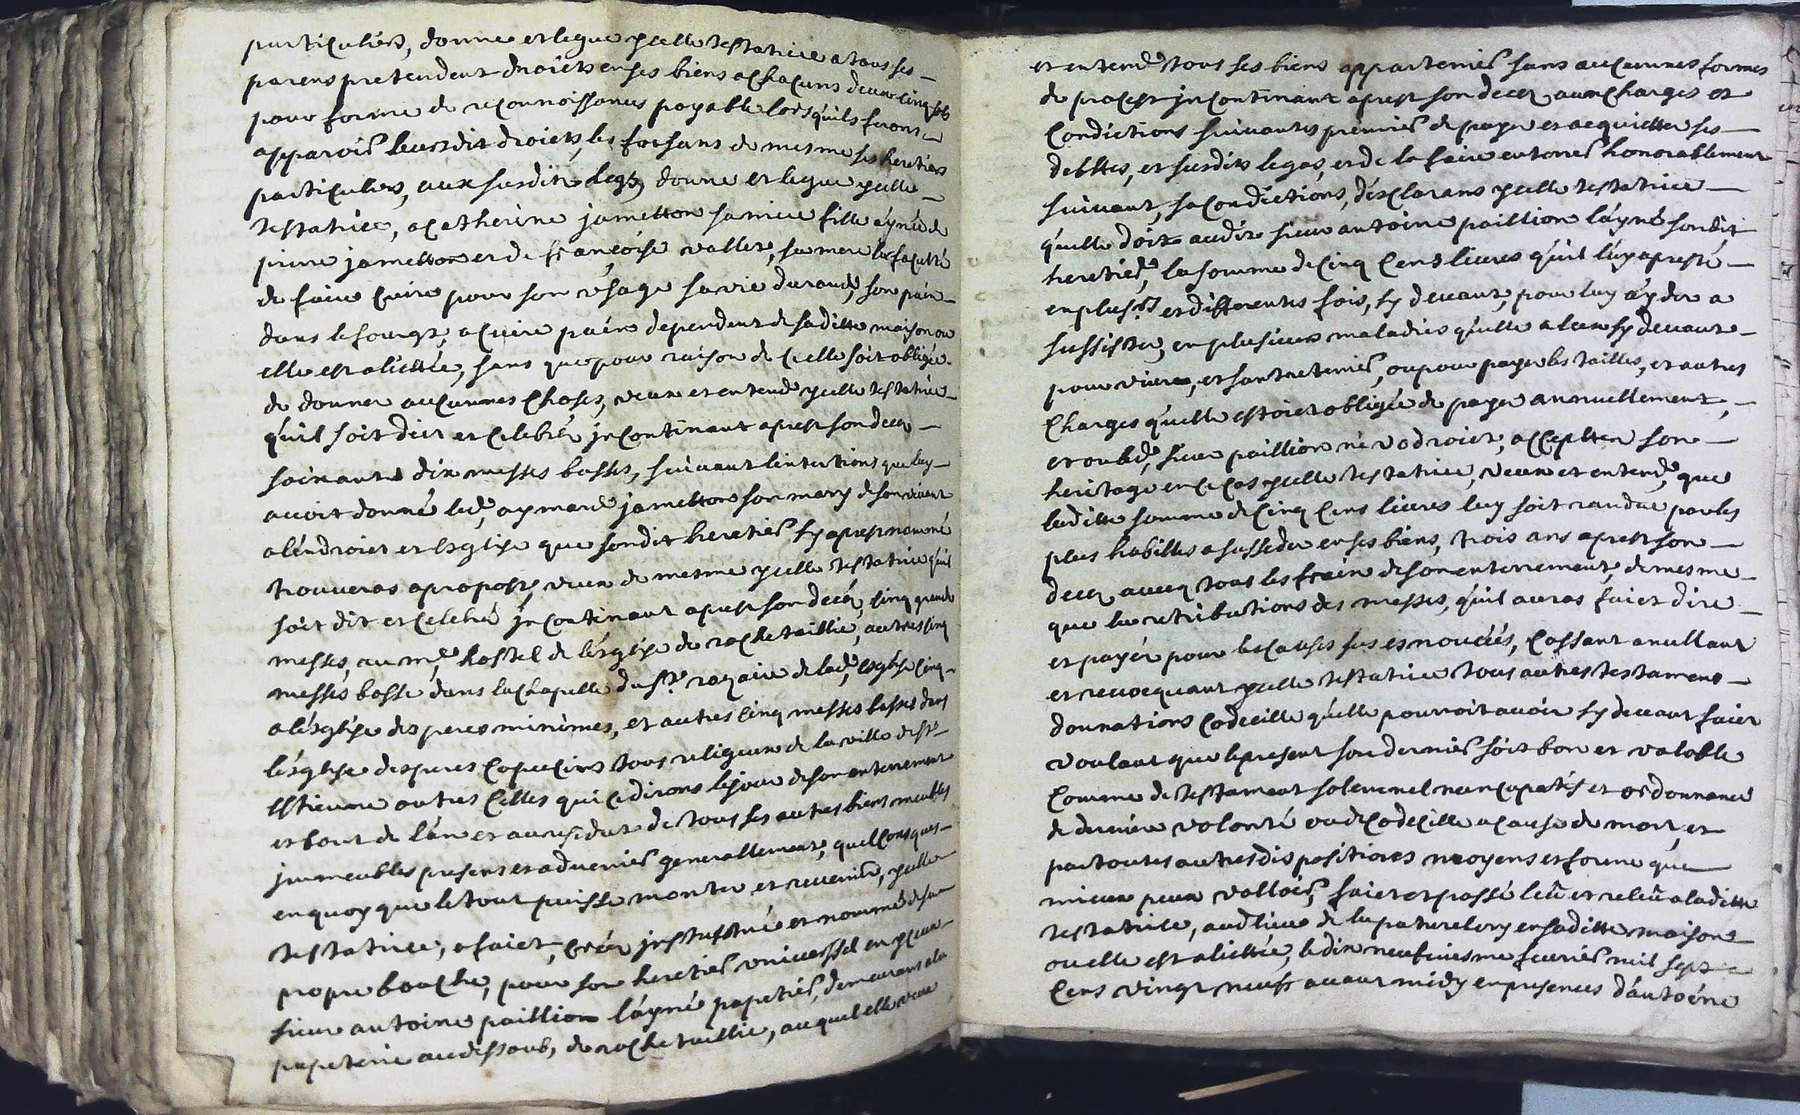 particuliers, donne et legue ycelle testatrice a tous ses
parens pretendent droicts en ses biens a chacuns deux cinq sols
pour forme de reconnoissance payable lors quils feront
apparoir leursdit droicts, les faisans de mesme ses heretiers
particuliers, aux susdits legs, donne et legue ycelle
testatrice, a catherine jametton sa niece fille aynée de
pierre jametton et de françoise vallet, sa mere la faculté
de faire cuire pour son usage sa vie durand, son pain
dans le fourgt, a cuire pain dependent de saditte maison ou
elle est alictée, sans que pour raison de ce elle soit obligée
de donner aucunnes choses, veux et entend ycelle testatrice
quil soit dict et celebré jncontinant aprest son deces
soixante dix messes basses, suivant lintentions que luy
avoit donné led, aymard jametton son mary de son vivant
a lendroict et esglise que sondit heretier sy aprest nommé
trouveras a propost, veux de mesme ycelle testatrice quil
soit dit et celebré jncontinant aprest son deces, cinq grande
messes, au me hostel de lesglise de rochetaillie, autres cinq
messes basse dans la chapelle du st rozaire de lad, esglise cinq
a lesglise des peres minimes, et autres cinq messes basses dans
lesglise des peres capucins tous religieux de la ville de st
estienne outres celles qui ce dirons le jour de son enterrement
et bout de lan et au residut de tous ses autres biens meubles
jmmeubles present et advenir generallement, quelconques
en quoy que le tout puisse monter et revenir, ycelle
testatrice, a faict, créé jnstittué et nommé de sa
propre bouche, pour son heretier universsel en yceux
sieur antoine paillion layné papetier, demeurant a la
papeterie au dessoub, de rochetaillie, auquel elle veux
et entend tous ses biens appartenir sans aucunnes formes
de procest jncontinant aprest son deces aux charges et
condictions suivantes premier de payer et acquitter ses
debttes, et susdits legas, et de la faire enterrer honorablement
suivant, sa condictions, desclarans ycelle testatrice
quelle doit audit sieur antoine paillion layné sondit
heretier, la somme de cinq cens livres quil luy a presté
en plusrs et differentes fois, sy devant, pour luy ayder a
sussister, en plusieurs maladies quelle a eux sy devant
pour vivre, et santretenir, ou pour payer les tailles, et autres
charges quelle estoict obligée de payer annuellement,
et ou led, sieur paillion ne vodroict, acceptter son
heritage en ce cas ycelle testatrice, veux et entend, que
laditte somme de cinq cens livres luy soit randue par les
plus habilles a susseder en ses biens, trois ans aprest son
deces avecq tous les frain de son enterrement, de mesme
que les retributions des messes, quil auras faict dire
et payér pour le causes sus esnoncées, cassant anullant
et revocquant ycelle testatrice tous autres testamens
donnations codecille quelle pourroit avoir sy devant faict
voulant que le present son dernier soit bon et valable
comme de testament solennel nuncopatif et ordonnance
de dernière volonté ou de codecille a cause de mort, et
par toutes autres dispositions moyens et forme que
mieux peux valloir, faict et passé leu et releu a laditte
testatrice, audlieu de la paturelery en saditte maison
ou elle est alictée, le dix neufviesme fevrier mil sept
cens vingt neuf avant midy en presences dantoéne